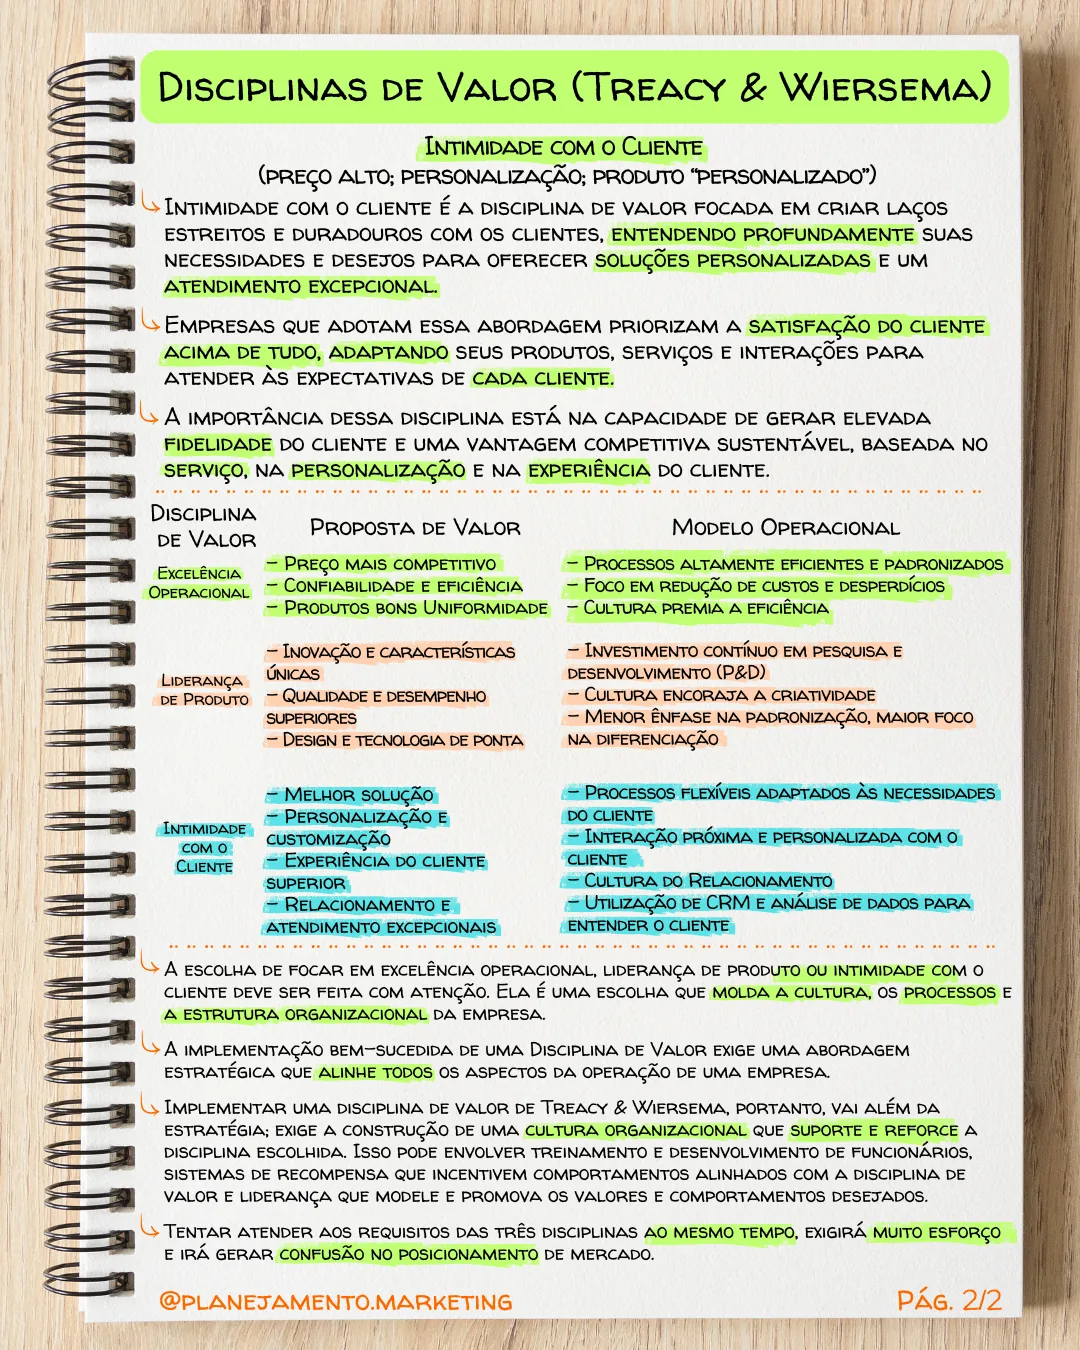 Disciplinas de Valor (Treacy & Wiersema)
Intimidade com o Cliente
(preço alto; personalização; produto “personalizado”)
Intimidade com o cliente é a disciplina de valor focada em criar laços
estreitos e duradouros com os clientes, entendendo profundamente suas
necessidades e desejos para oferecer soluções personalizadas e um
atendimento excepcional.
Empresas que adotam essa abordagem priorizam a satisfação do cliente
acima de tudo, adaptando seus produtos, serviços e interações para
atender às expectativas de cada cliente.
A importância dessa disciplina está na capacidade de gerar elevada
fidelidade do cliente e uma vantagem competitiva sustentável, baseada no
serviço, na personalização e na experiência do cliente.
Disciplina
de Valor
Proposta de Valor
Modelo Operacional
Excelência
Operacional
- Preço mais competitivo
- Confiabilidade e eficiência
- Produtos bons Uniformidade
- Processos altamente eficientes e padronizados
- Foco em redução de custos e desperdícios
- Cultura premia a eficiência
Liderança
de Produto
- Inovação e características
únicas
- Qualidade e desempenho
superiores
- Design e tecnologia de ponta
- Investimento contínuo em pesquisa e
desenvolvimento (P&D)
- Cultura encoraja a criatividade
- Menor ênfase na padronização, maior foco
na diferenciação
Intimidade
com o
Cliente
- Melhor solução
- Personalização e
customização
- Experiência do cliente
superior
- Relacionamento e
atendimento excepcionais
- Processos flexíveis adaptados às necessidades
do cliente
- Interação próxima e personalizada com o
cliente
- Cultura do Relacionamento
- Utilização de CRM e análise de dados para
entender o cliente
A escolha de focar em excelência operacional, liderança de produto ou intimidade com o
cliente deve ser feita com atenção. Ela é uma escolha que molda a cultura, os processos e
a estrutura organizacional da empresa.
A implementação bem-sucedida de uma Disciplina de Valor exige uma abordagem
estratégica que alinhe todos os aspectos da operação de uma empresa.
Implementar uma disciplina de valor de Treacy & Wiersema, portanto, vai além da
estratégia; exige a construção de uma cultura organizacional que suporte e reforce a
disciplina escolhida. Isso pode envolver treinamento e desenvolvimento de funcionários,
sistemas de recompensa que incentivem comportamentos alinhados com a disciplina de
valor e liderança que modele e promova os valores e comportamentos desejados.
Tentar atender aos requisitos das três disciplinas ao mesmo tempo, exigirá muito esforço
e irá gerar confusão no posicionamento de mercado.
@planejamento.marketing
Pág. 2/2